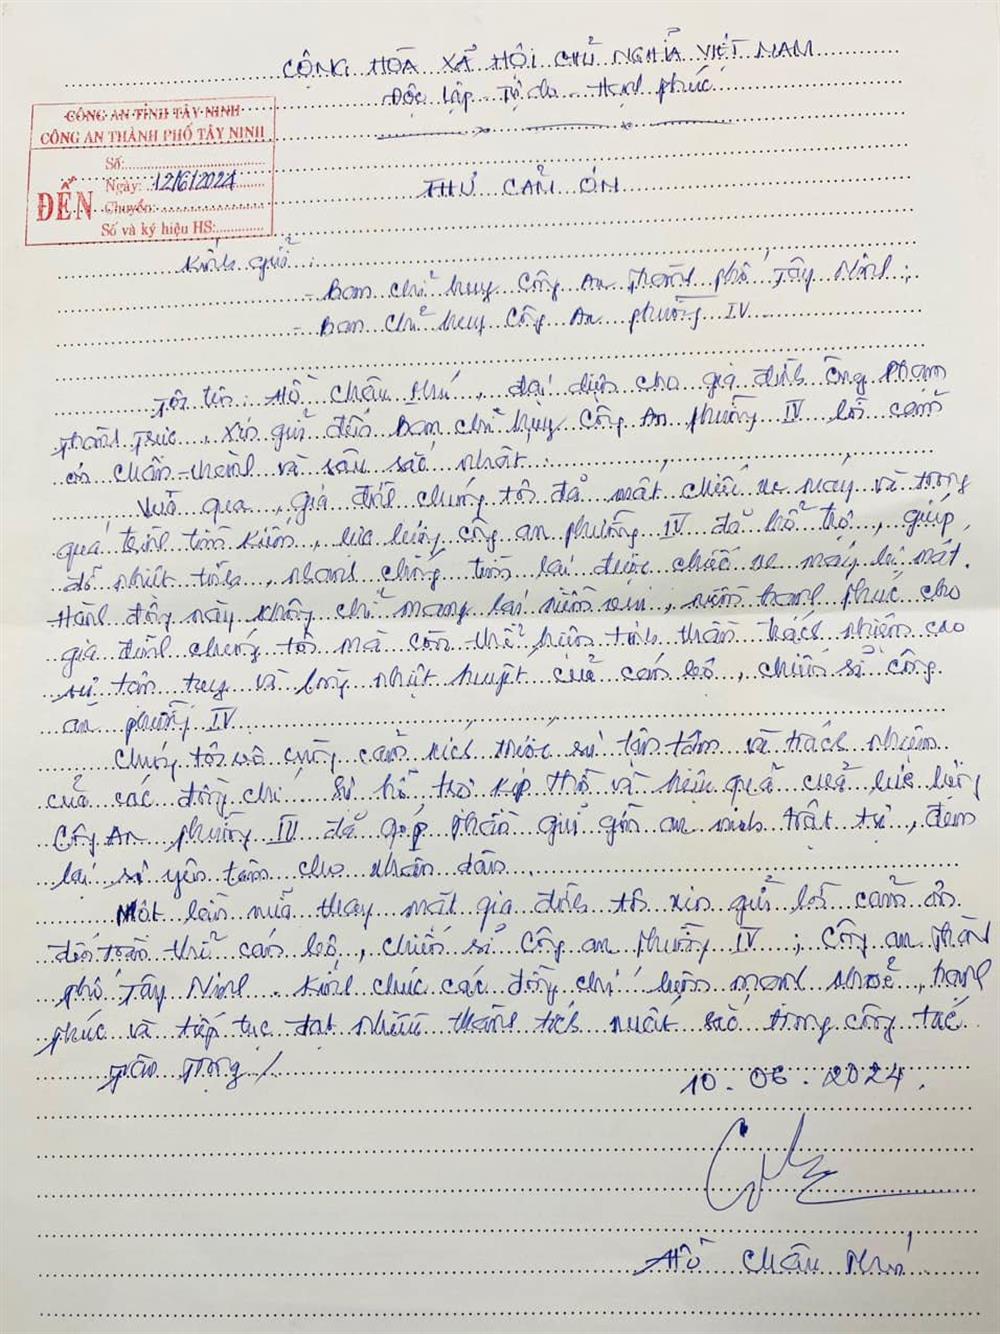 CỘNG HÒA XÃ HỘI CHỦ NGHĨA VIỆT NAM
Độc lập - Tự do - Hạnh phúc
CÔNG AN TỈNH TÂY NINH
CÔNG AN THÀNH PHỐ TÂY NINH
ĐẾN
Số:
Ngày: 12/6/2024
Chuyển:
Số và ký hiệu HS:
THƯ CẢM ƠN
Kính gửi:
- Ban chỉ huy Công An thành phố Tây Ninh;
- Ban chỉ huy Công An phường IV
Tôi tên: Hồ Châu Phú, đại diện cho gia đình ông Phạm
Thành Trực, xin gửi đến Ban chỉ huy Công An phường IV lời cảm
ơn chân thành và sâu sắc nhất.
Vừa qua, gia đình chúng tôi đã mất chiếc xe máy và trong
quá trình tìm kiếm, lực lượng công an phường IV đã hỗ trợ, giúp
đỡ nhiệt tình, nhanh chóng tìm lại được chiếc xe máy bị mất.
Hành động này không chỉ mang lại niềm vui, niềm hạnh phúc cho
gia đình chúng tôi mà còn thể hiện tinh thần trách nhiệm cao
sự tận tụy và lòng nhiệt huyết của cán bộ, chiến sĩ công
an phường IV
Chúng tôi vô cùng cảm kích trước sự tận tâm và trách nhiệm
của các đồng chí. Sự hỗ trợ kịp thời và hiệu quả của lực lượng
Công An phường IV đã góp phần giữ gìn an ninh trật tự, đem
lại sự yên tâm cho nhân dân
Một lần nữa thay mặt gia đình tôi xin gửi lời cảm ơn
đến toàn thể cán bộ, chiến sĩ Công an phường IV; Công an thành
phố Tây Ninh. Kính chúc các đồng chí luôn mạnh khoẻ, hạnh
phúc và tiếp tục đạt nhiều thành tích xuất sắc trong công tác
Trân trọng./
10.06.2024.
Hồ Châu